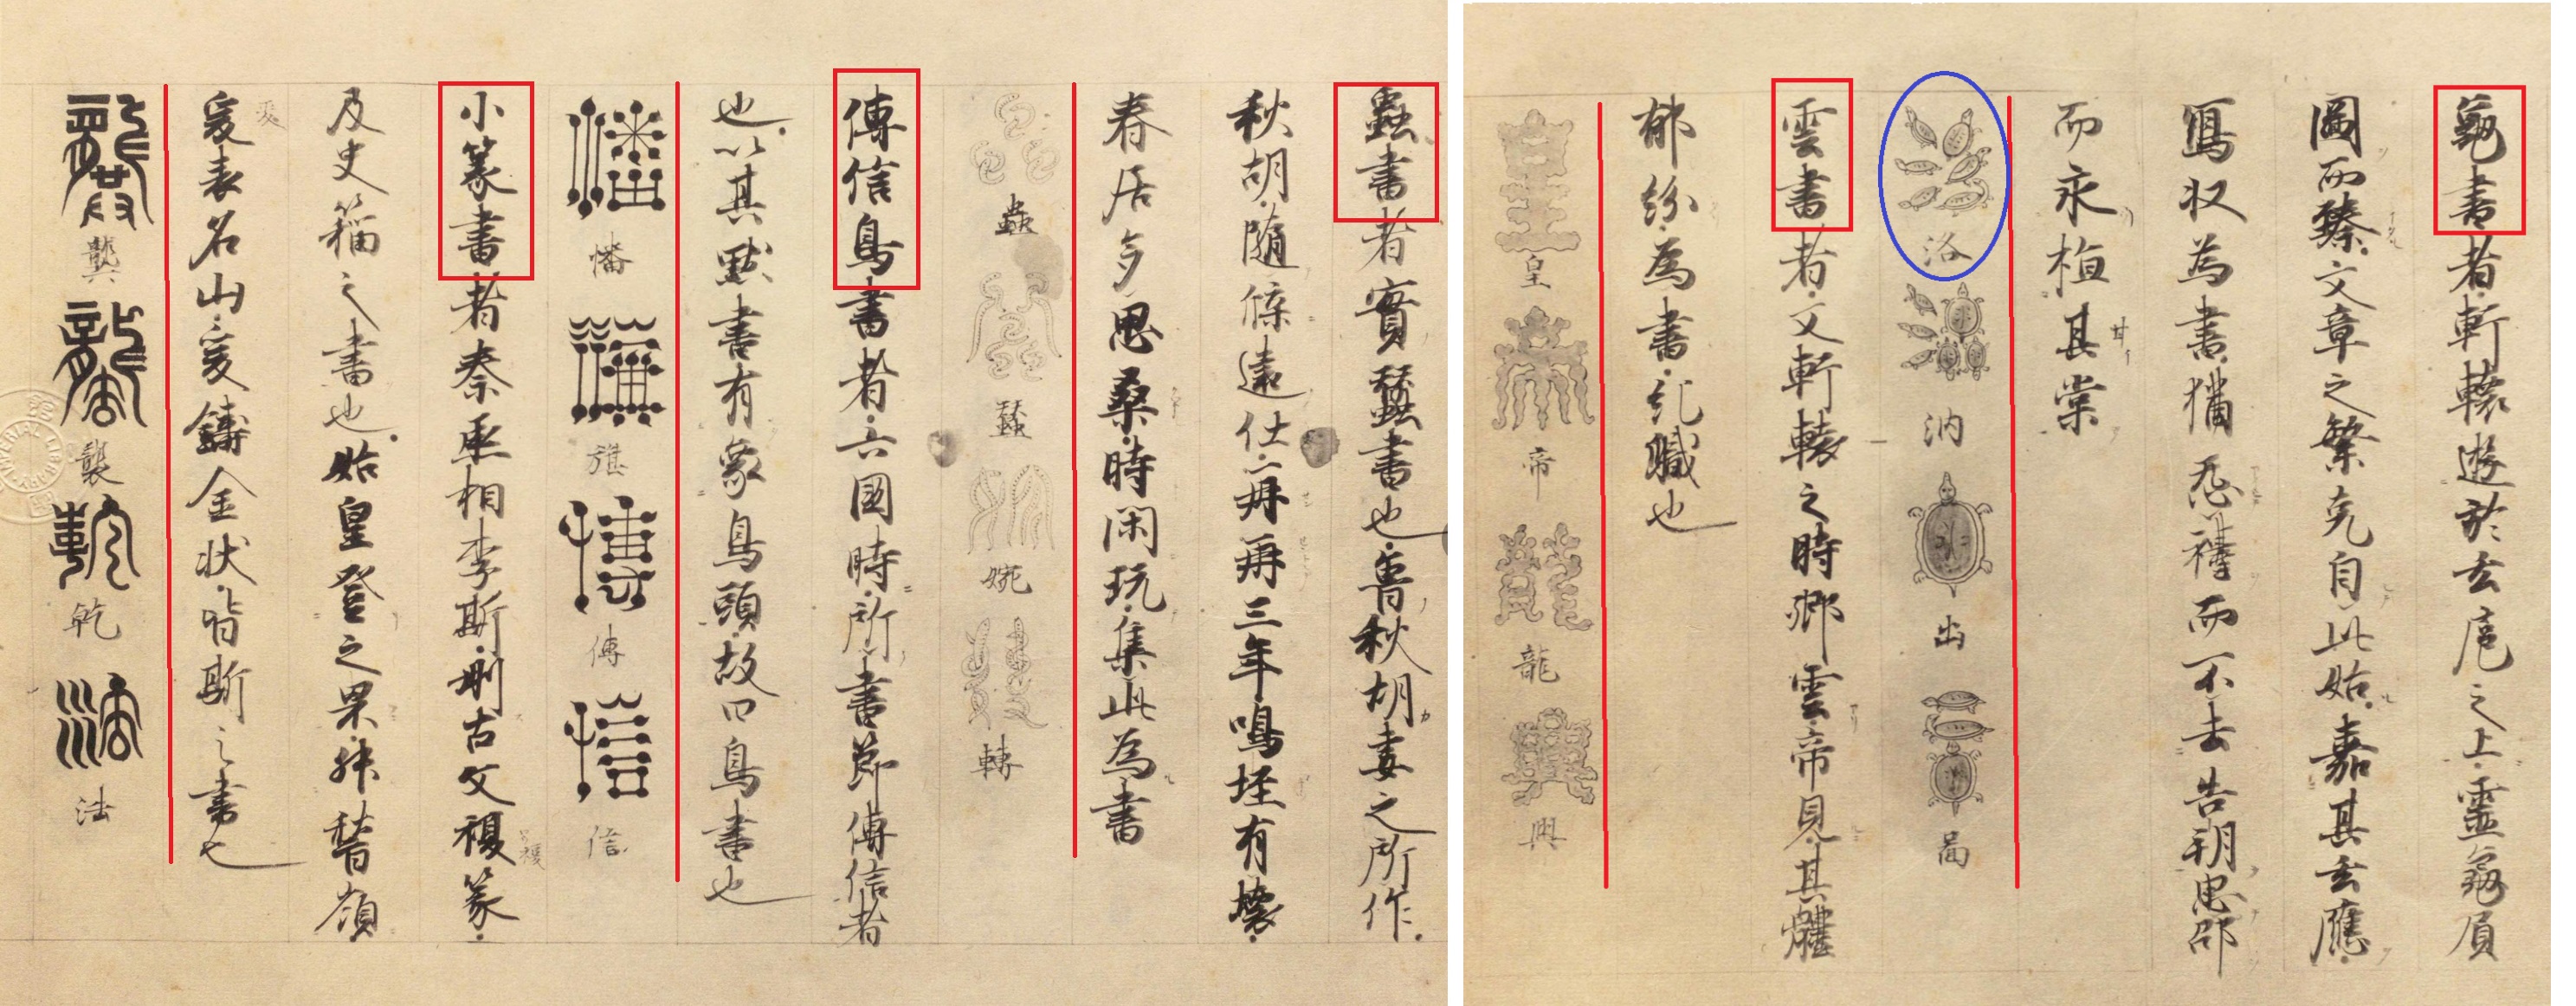 龜書者軒轅遊於玄扈之上靈龜負
圖而臻文章之繁克自此始嘉其玄應
寫収為書猶恐禱而不去告朔思邵
而永植其棠
洛 汭 出 啚
雲書者文軒轅之時卿雲帝見其軆
郁紛為書糺職也
皇 帝 龍 興
蟲書者實蠶書也魯秋胡妻之所作
秋胡隨條遠仕再再三年鳴垤有懐
春居多思桑時閑玩集此為書
蟲 蠶 婉 轉
傳信鳥書者六國時所書節傳信者
也以其默書有象鳥頭故曰鳥書也
幡 旗 傳 信
小篆書者秦丞相李斯刪古文複篆
及史籀之書也始皇登之罘嶺
爰表名山爰鑄金状皆斯之書也
龔 襲 乾 法